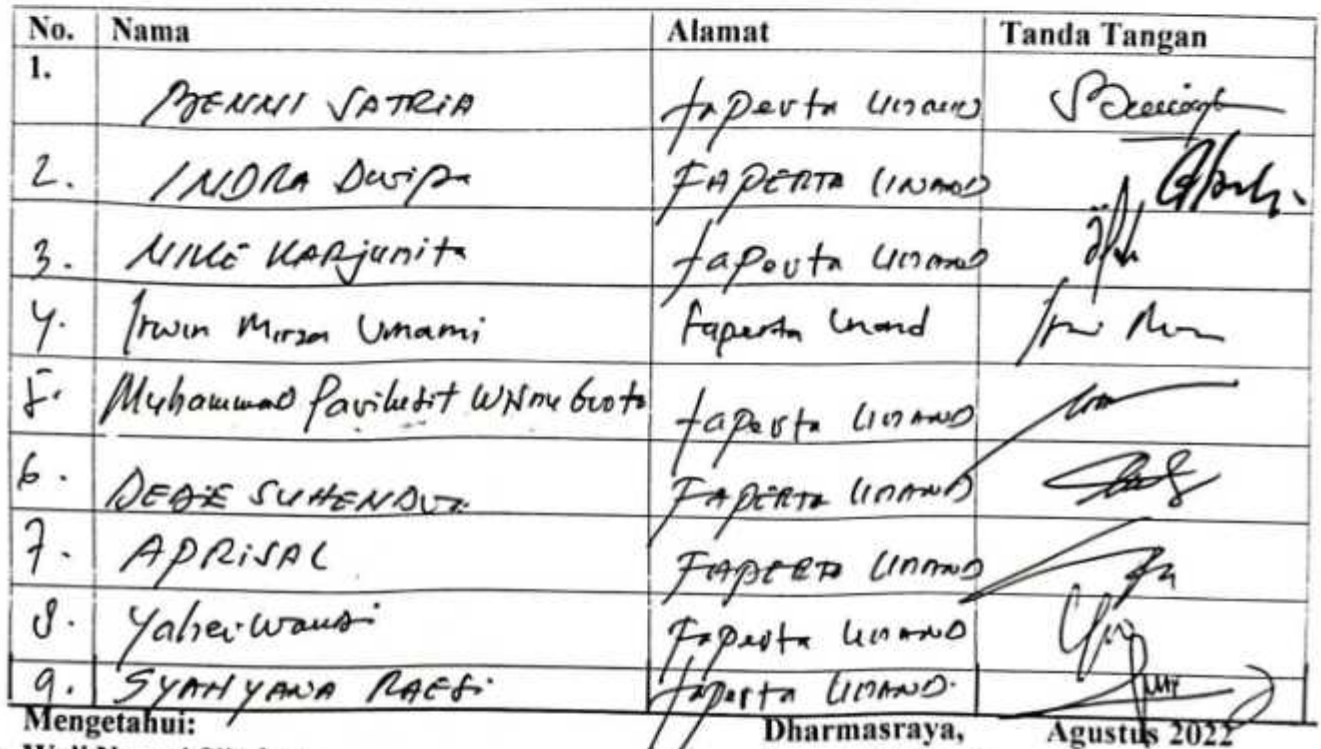 No. Nama Alamat Tanda Tangan
1. BENNI SATRIA faperta UNAND
2. INDRA Dwipa FAPERTA UNAND
3. NIKE KARjunita faperta UNAND
4. Irwin Mirza Umami Faperta Unand
5. Muhammad Parikesit WISnu broto faperta UNAND
6. DEDE SUHENDRA FAPERTA UNAND
7. APRISAL FAPERTA UNAND
8. Yaherwandi Faperta UNAND
9. SYAHYANA RAESi faperta UNAND.
Mengetahui: Dharmasraya, Agustus 2022